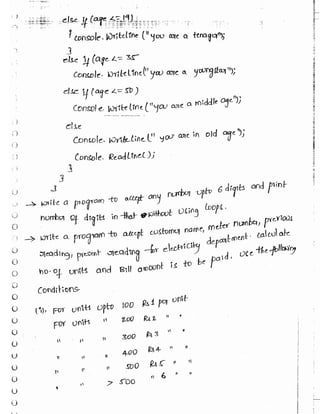 else if (age <= 19)
{ console. WriteLine ("you are a tenager");
}
else if (age <= 35
Console. WriteLine("you are a youngstar");
else if (age <= 50)
Console. WriteLine ("you are a middle age");
else
Console. WriteLine (" you are in old age");
Console. ReadLine();
}
}
}
→ write a program to accept any number upto 6 digits and print
number of digits in that without using loops.
→ write a program to accept customer name, meter number, previous
reading, present reading for electricity department. calculate
no. of units and Bill amount is to be paid. use the following
Conditions-
(1), For units upto 100 Rs 1 per unit
For units " 200 Rs 2 " "
" " 300 Rs 3 " "
" " 400 Rs 4 " "
" " 500 Rs 5 " "
" > 500 " 6 " "